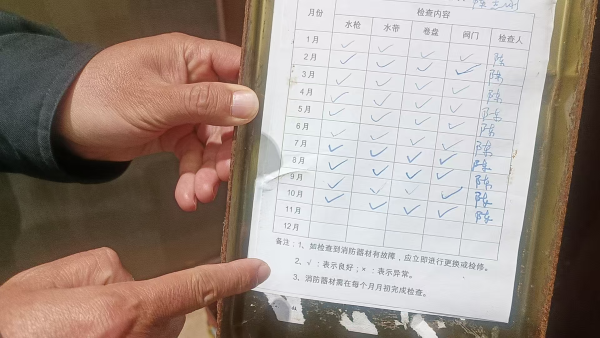 检查内容
月份 水枪 水带 卷盘 阀门 检查人
1月 ✓ ✓ ✓ ✓ 陈
2月 ✓ ✓ ✓ ✓ 陈
3月 ✓ ✓ ✓ ✓ 陈
4月 ✓ ✓ ✓ ✓ 陈
5月 ✓ ✓ ✓ ✓ 陈
6月 ✓ ✓ ✓ ✓ 陈
7月 ✓ ✓ ✓ ✓ 陈
8月 ✓ ✓ ✓ ✓ 陈
9月 ✓ ✓ ✓ ✓ 陈
10月 ✓ ✓ ✓ ✓ 陈
11月
12月
备注：1、如检查到消防器材有故障，应立即进行更换或检修。
2、√：表示良好；×：表示异常。
3、消防器材需在每个月月初完成检查。